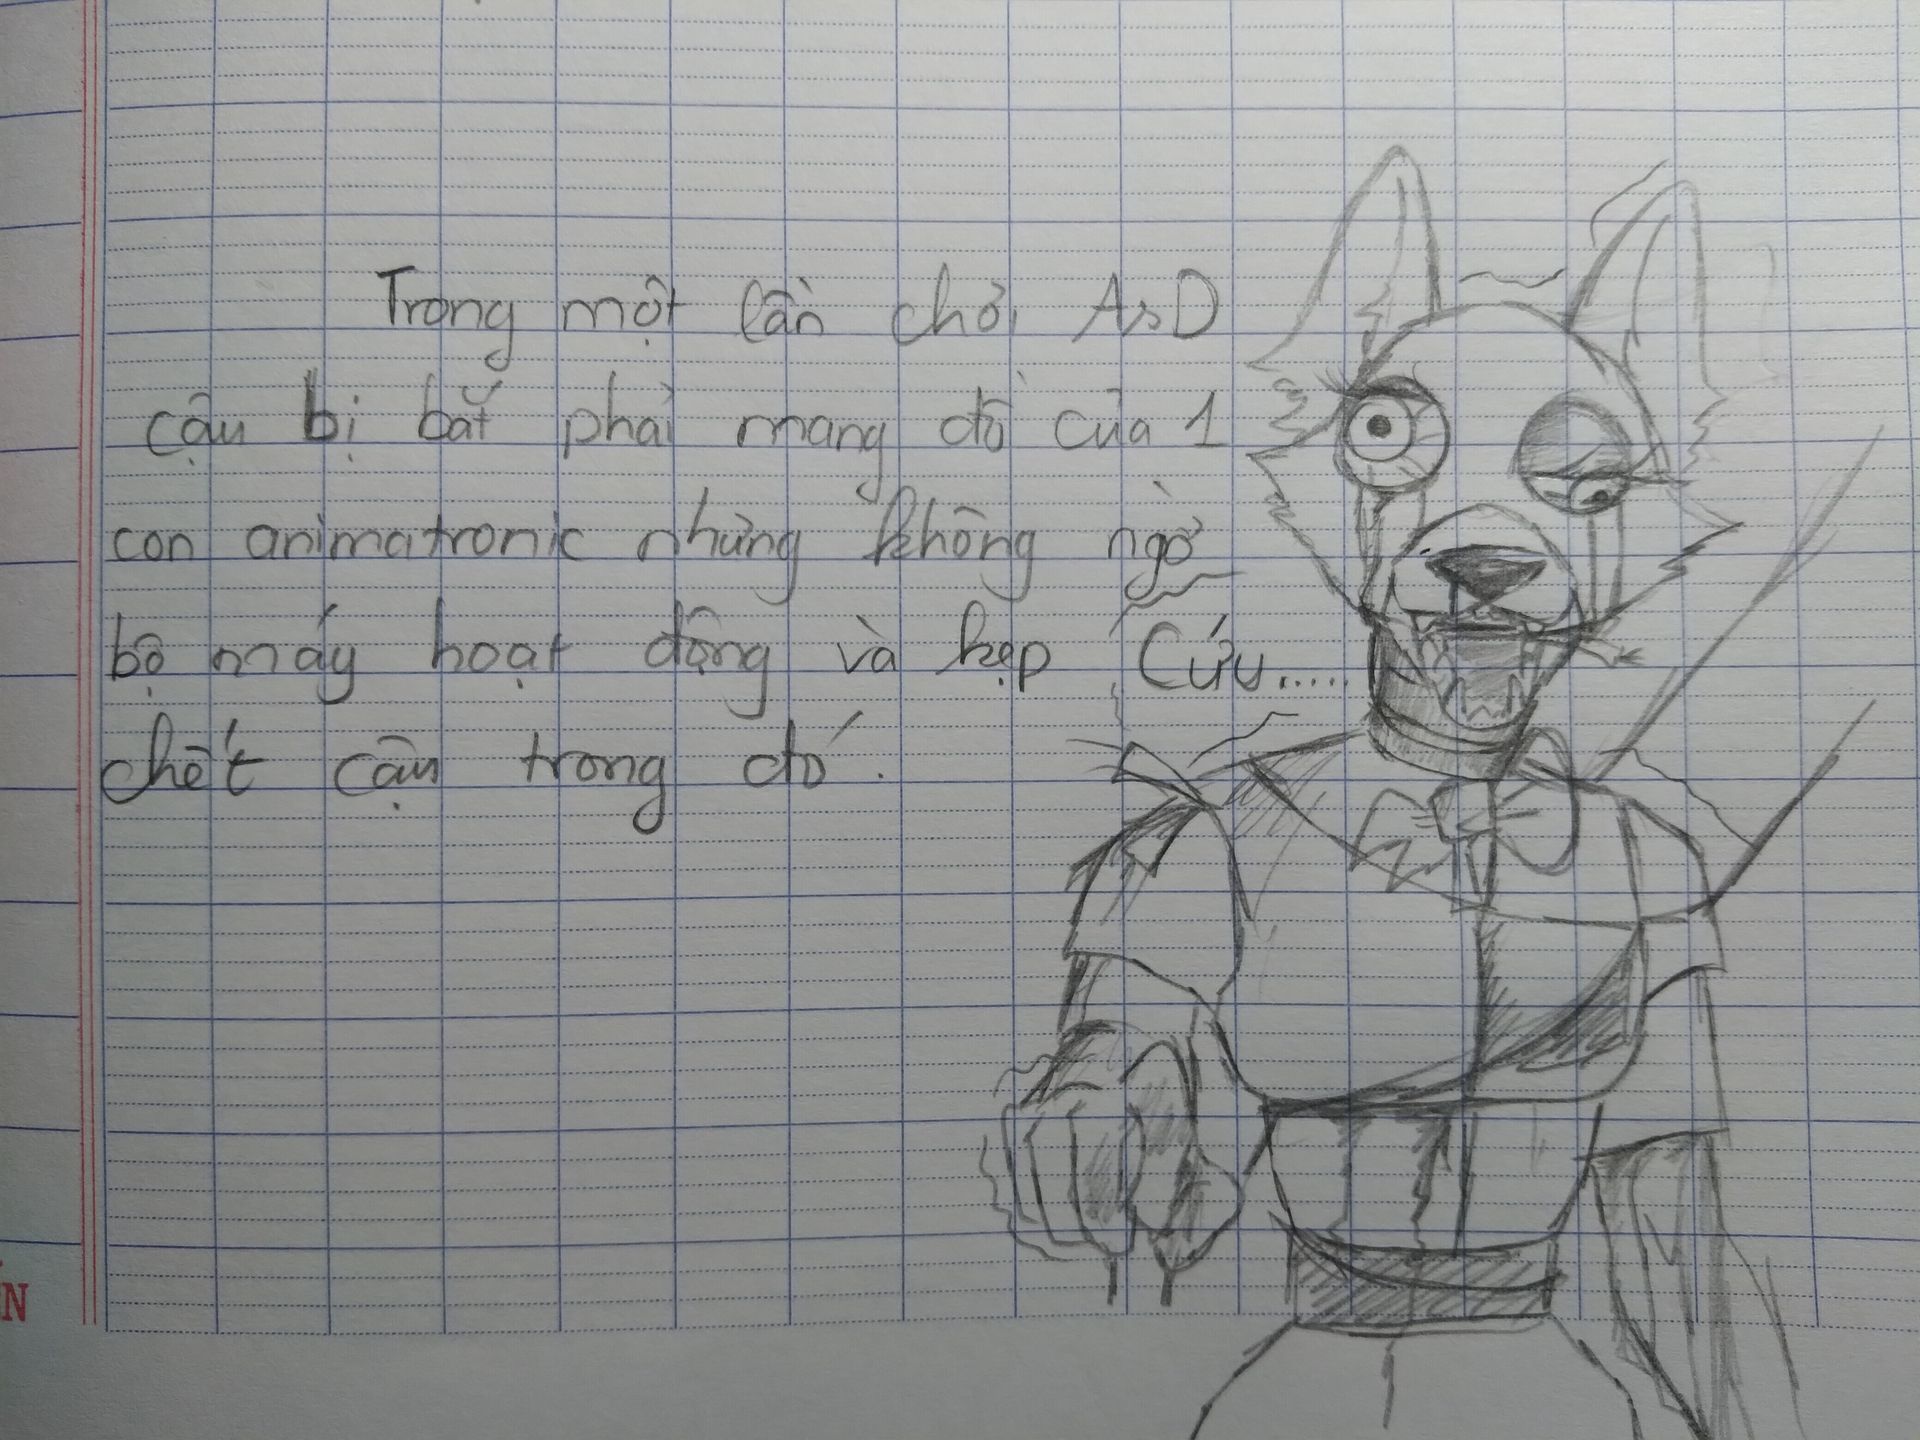 Trong một lần chơi AsD
cậu bị bắt phải mang đồ của 1
con animatronic nhưng không ngờ
bộ máy hoạt động và kẹp
chết cậu trong đó.
Cứu.....
N